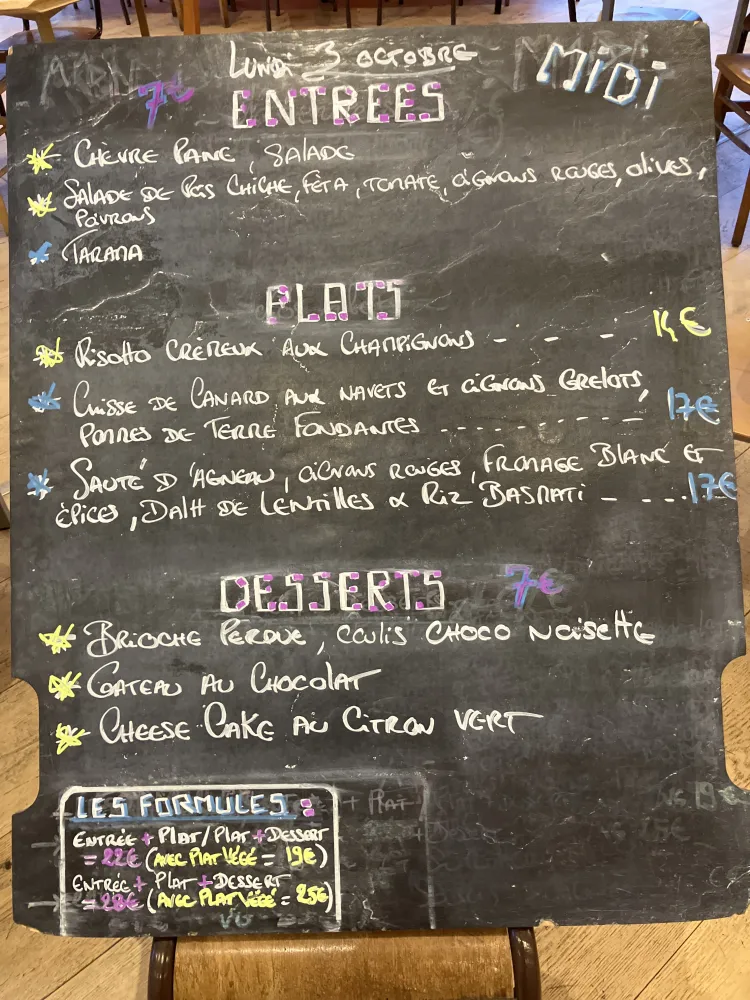 LUNDI 3 OCTOBRE
MIDI
7€
ENTREES
CHÈVRE PANÉ, SALADE
SALADE DE POIS CHICHE, FÉTA, TOMATE, OIGNONS ROUGES, OLIVES,
POIVRONS
TARAMA
PLATS
RISOTTO CRÉMEUX AUX CHAMPIGNONS - - - 14€
CUISSE DE CANARD AUX NAVETS ET OIGNONS GRELOTS,
POMMES DE TERRE FONDANTES - - - - - - - - - - 17€
SAUTÉ D'AGNEAU, OIGNONS ROUGES, FROMAGE BLANC ET
ÉPICES, DALH DE LENTILLES & RIZ BASMATI - - - .. 17€
DESSERTS 7€
BRIOCHE PERDUE, COULIS CHOCO NOISETTE
GATEAU AU CHOCOLAT
CHEESE CAKE AU CITRON VERT
LES FORMULES :
ENTRÉE + PLAT / PLAT + DESSERT
= 22€ (AVEC PLAT VÉGÉ = 19€)
ENTRÉE + PLAT + DESSERT
= 28€ (AVEC PLAT VÉGÉ = 25€)